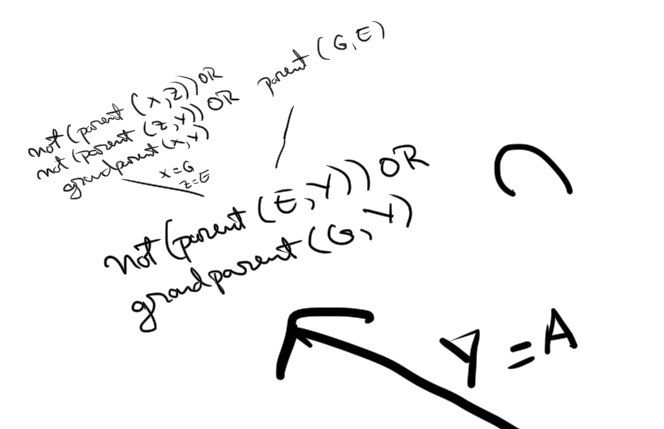 not(parent(x,z)) OR
not(parent(z,y)) OR
grandparent(x,y)
parent(G,E)
x=G
z=E
not(parent(E,Y)) OR
grandparent(G,Y)
Y=A